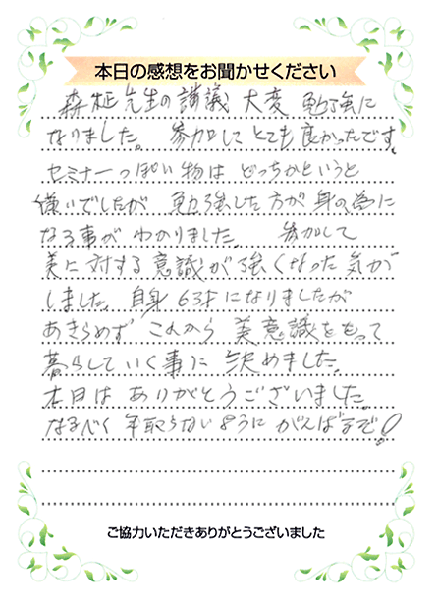 本日の感想をお聞かせください
森柾先生の講議 大変 勉強に
なりました。 参加してとても良かったです。
セミナーっぽい物は どっちかというと
嫌いでしたが 勉強した方が身の為に
なる事が わかりました。 参加して
美に対する意識が強くなった気が
しました。自身 63才になりましたが
あきらめず これから 美意識をもって
暮らしていく事に決めました。
本日は ありがとうございました
なるべく 年取らないように がんばるぞ!
ご協力いただきありがとうございました